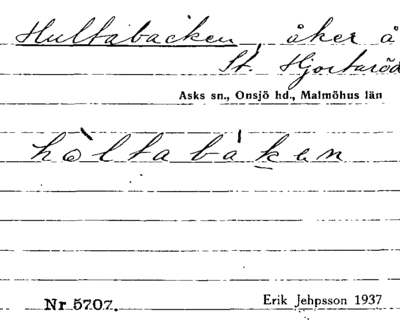 Hultabacken, åker å
St. Hjortaröd
Asks sn., Onsjö hd., Malmöhus län
hòltabáken
Nr 5707.
Erik Jehpsson 1937